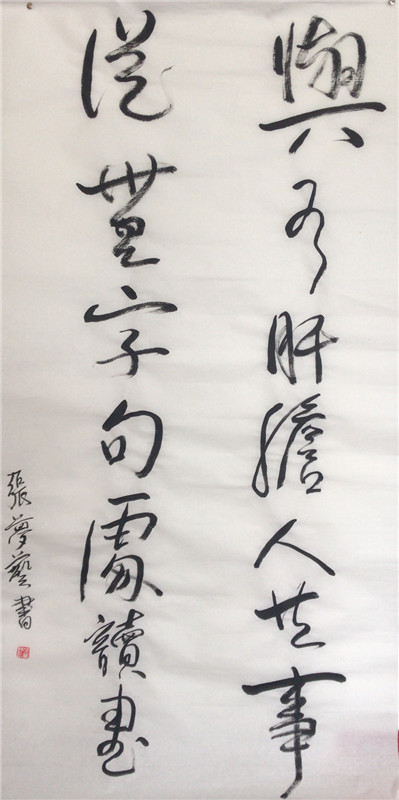 與有肝膽人共事
從無字句處讀書
張夢藝書